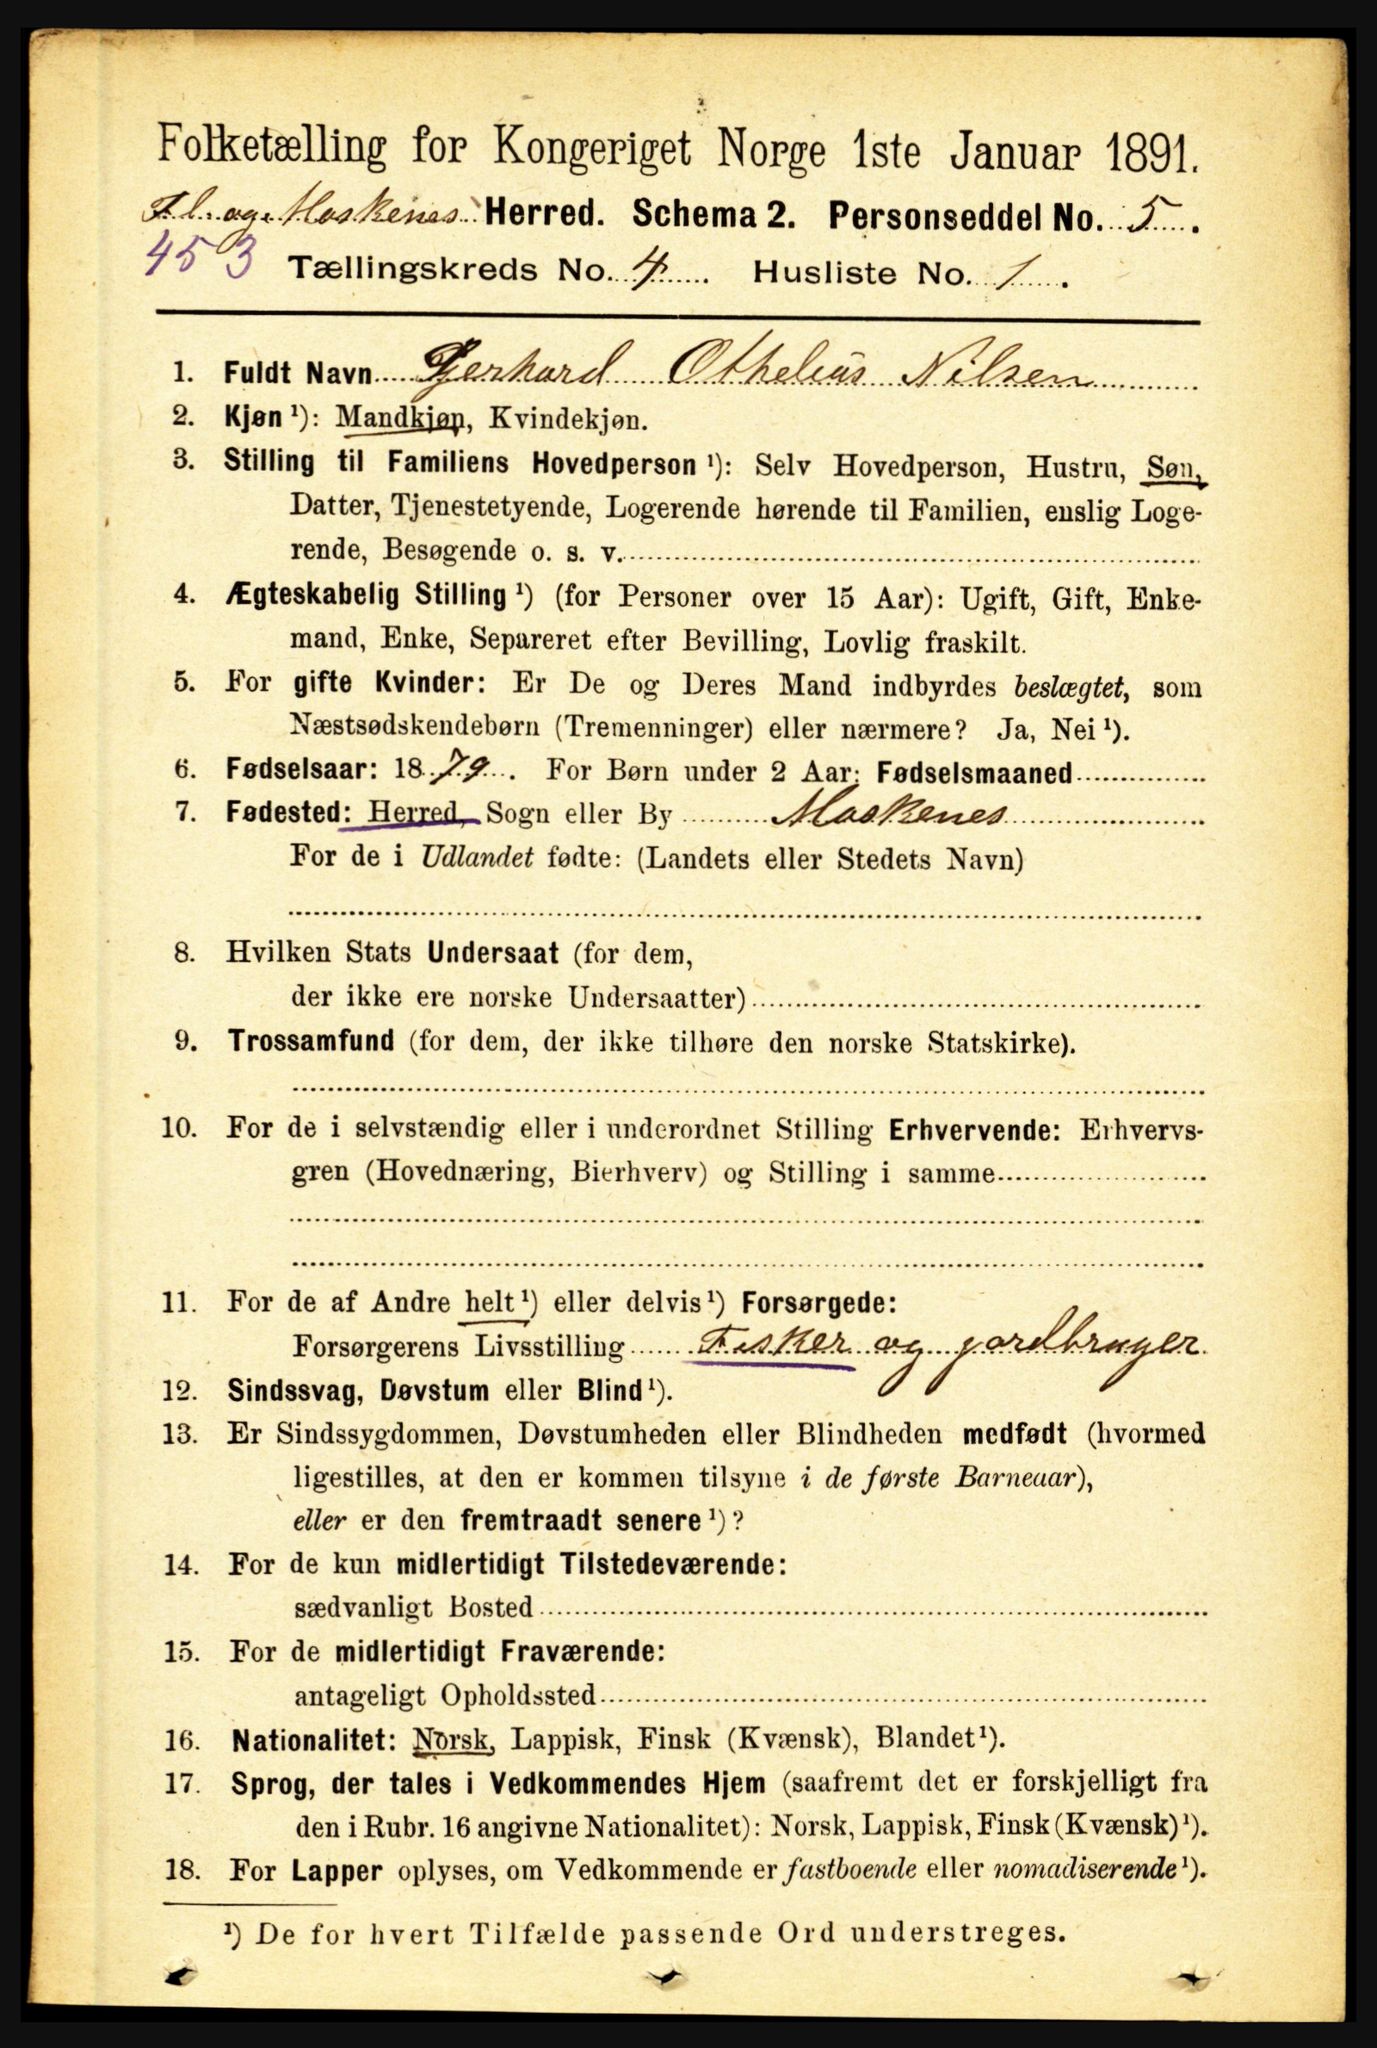 Folketælling for Kongeriget Norge 1ste Januar 1891.
Fl. og Moskenes Herred. Schema 2. Personseddel No. 5.
453 Tællingskreds No. 4. Husliste No. 1.
1. Fuldt Navn Gjerhard Othelius Nilsen
2. Kjøn ¹): Mandkjøn, Kvindekjøn.
3. Stilling til Familiens Hovedperson ¹): Selv Hovedperson, Hustru, Søn,
Datter, Tjenestetyende, Logerende hørende til Familien, enslig Loge-
rende, Besøgende o. s. v.
4. Ægteskabelig Stilling ¹) (for Personer over 15 Aar): Ugift, Gift, Enke-
mand, Enke, Separeret efter Bevilling, Lovlig fraskilt.
5. For gifte Kvinder: Er De og Deres Mand indbyrdes beslægtet, som
Næstsødskendebørn (Tremenninger) eller nærmere? Ja, Nei ¹).
6. Fødselsaar: 1879. For Børn under 2 Aar: Fødselsmaaned
7. Fødested: Herred, Sogn eller By Moskenes
For de i Udlandet fødte: (Landets eller Stedets Navn)
8. Hvilken Stats Undersaat (for dem,
der ikke ere norske Undersaatter)
9. Trossamfund (for dem, der ikke tilhøre den norske Statskirke).
10. For de i selvstændig eller i underordnet Stilling Erhvervende: Erhvervs-
gren (Hovednæring, Bierhverv) og Stilling i samme
11. For de af Andre helt ¹) eller delvis ¹) Forsørgede:
Forsørgerens Livsstilling Fisker og jordbruger
12. Sindssvag, Døvstum eller Blind ¹).
13. Er Sindssygdommen, Døvstumheden eller Blindheden medfødt (hvormed
ligestilles, at den er kommen tilsyne i de første Barneaar),
eller er den fremtraadt senere ¹)?
14. For de kun midlertidigt Tilstedeværende:
sædvanligt Bosted
15. For de midlertidigt Fraværende:
antageligt Opholdssted
16. Nationalitet: Norsk, Lappisk, Finsk (Kvænsk), Blandet ¹).
17. Sprog, der tales i Vedkommendes Hjem (saafremt det er forskjelligt fra
den i Rubr. 16 angivne Nationalitet): Norsk, Lappisk, Finsk (Kvænsk) ¹).
18. For Lapper oplyses, om Vedkommende er fastboende eller nomadiserende ¹).
¹) De for hvert Tilfælde passende Ord understreges.